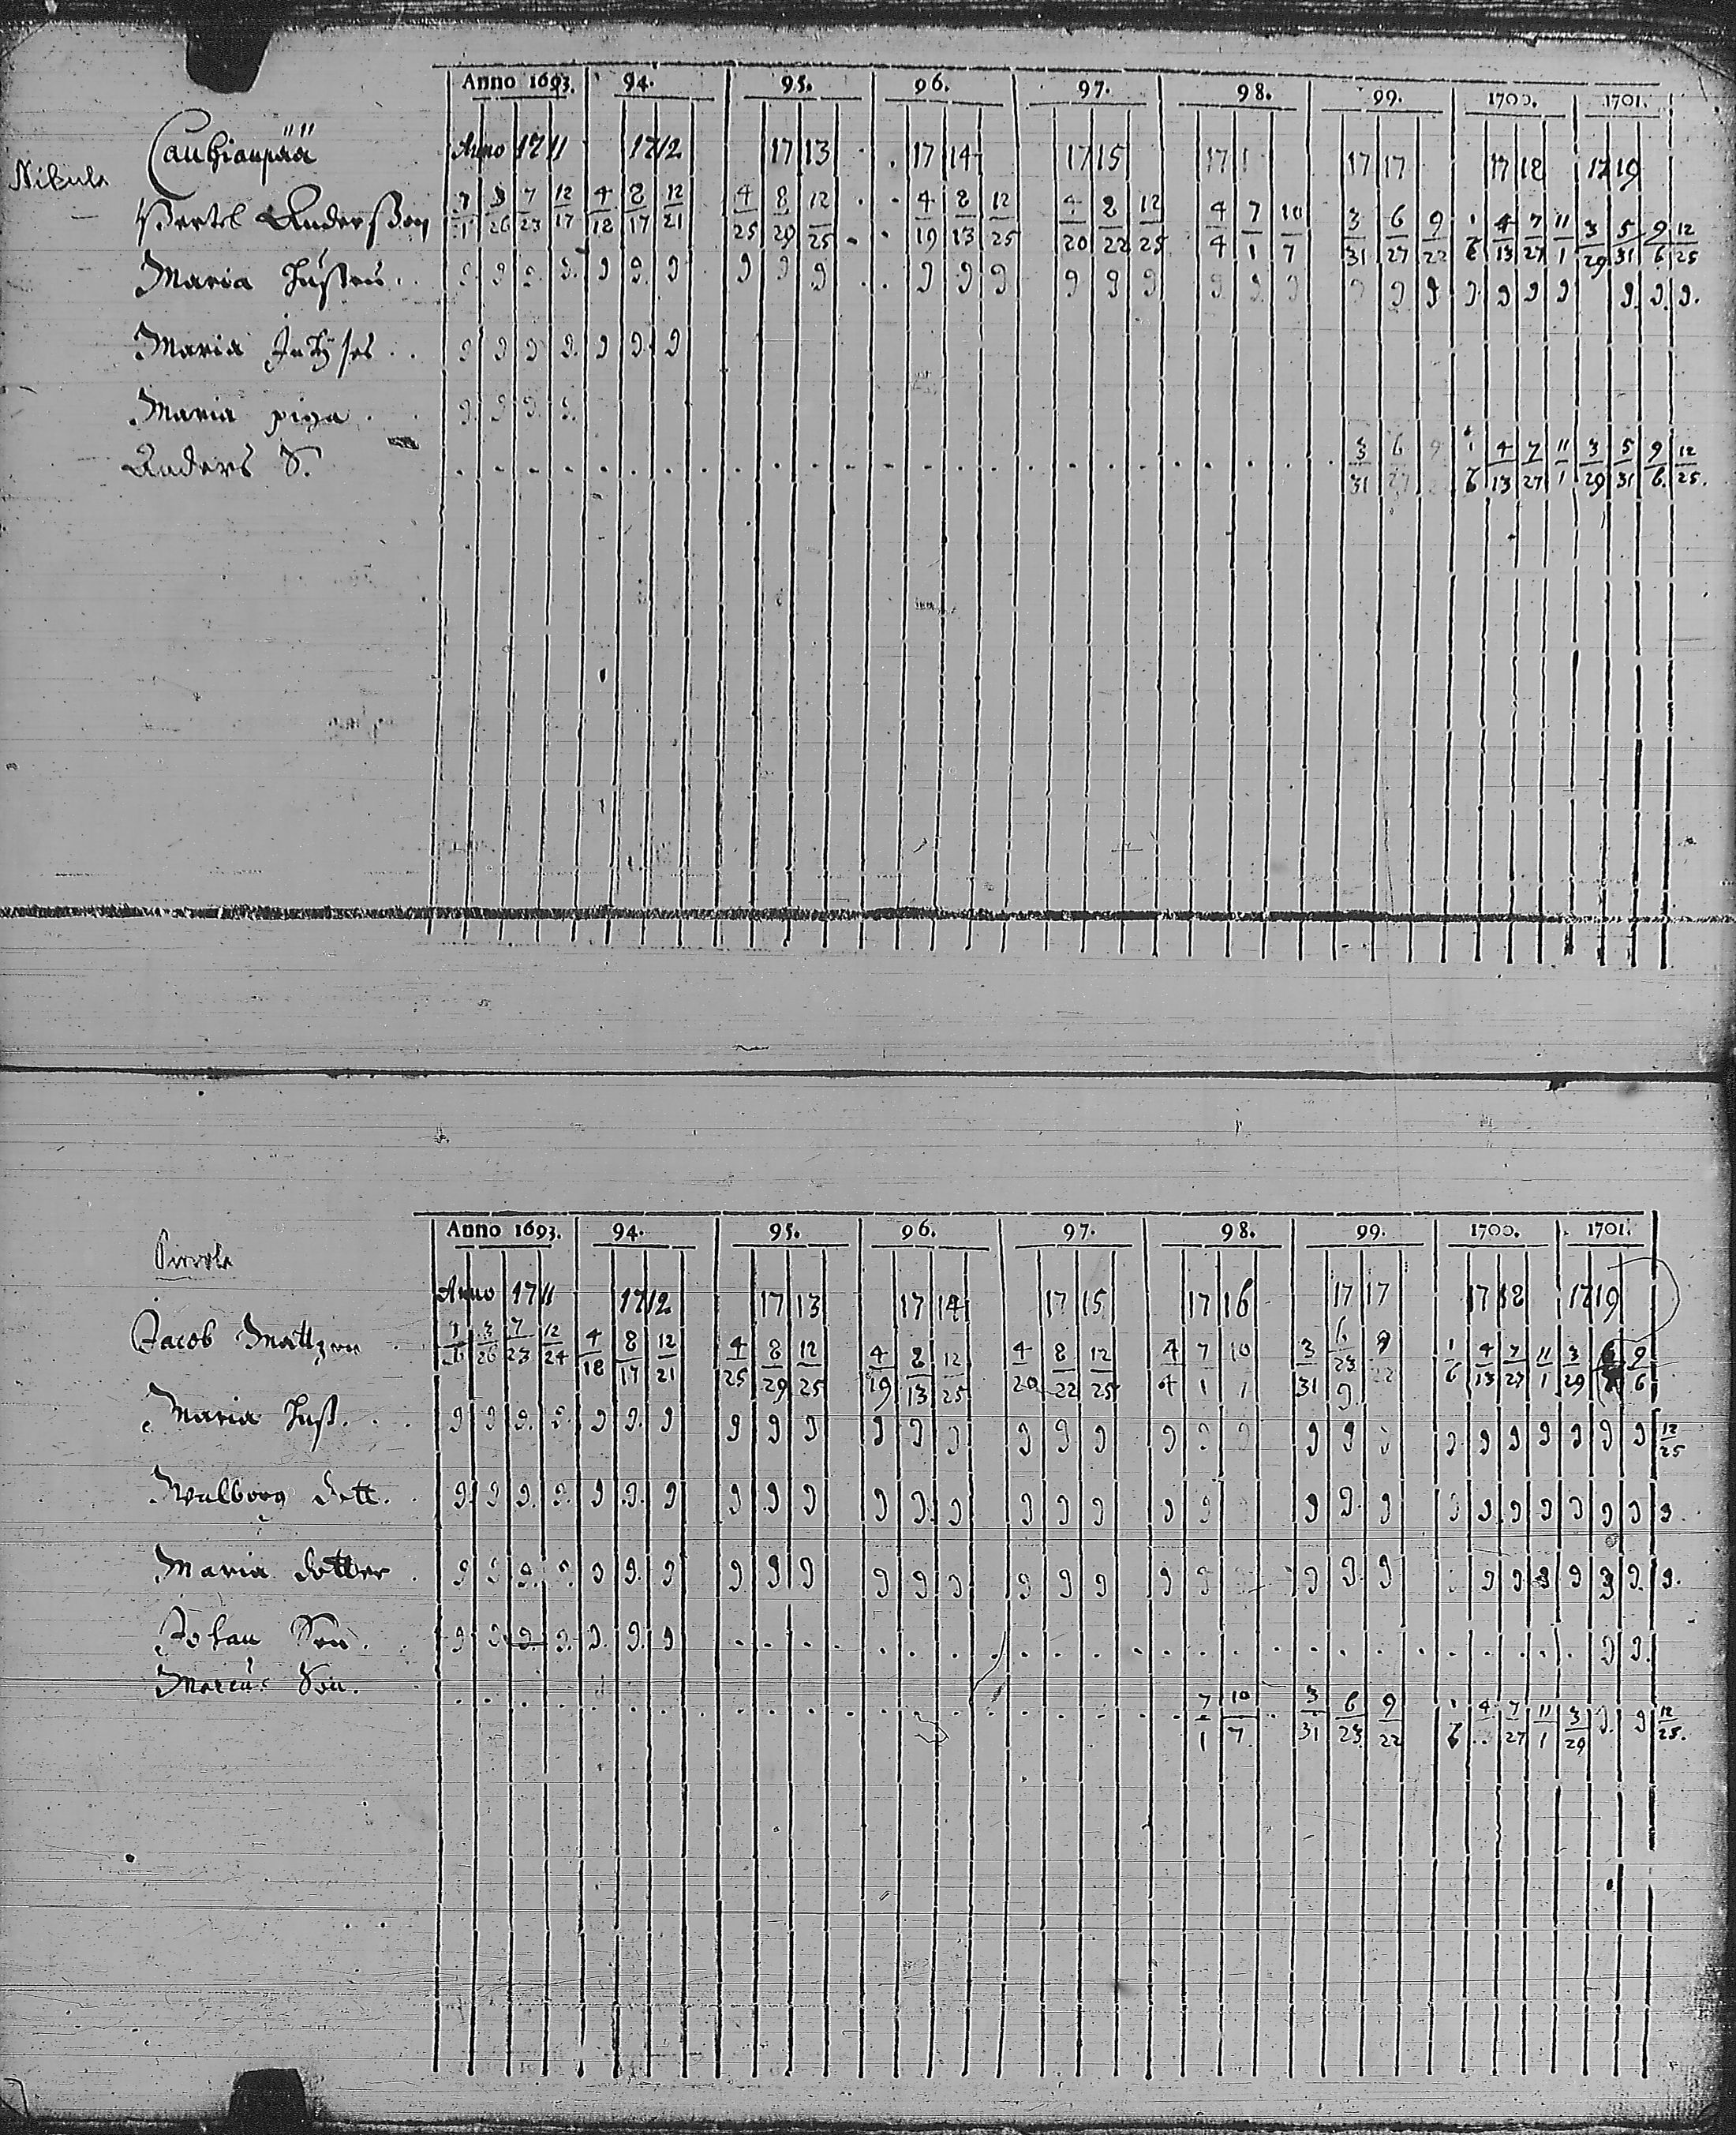 Anno 1693. 94. 95. 96. 97. 98. 99. 1700. 1701.
Cauhianpää Anno 1711 1712 1713 1714 1715 171 1717 1718 1719
Nikula
Bertel Anderßon 3/26 7/23 12/17 4/18 8/17 12/21 4/25 8/29 12/25 4/19 8/13 12/25 4/20 8/22 12/25 4/4 7/1 10/7 3/31 6/27 9/22 1/6 4/13 7/27 11/1 3/29 5/31 9/6 12/25
Maria Hustru 9 9 9 9 9 9 9 9 9 9 9 9 9 9 9 9 9 9 9 9 9 9 9 9 9 9 9 9. 9.
Maria 9 9 9 9. 9 9. 9
Maria piga 9. 9 9. 9.
Anders S. 3/31 6/27 9 1/6 4/13 7/27 11/1 3/29 5/31 9/6 12/25.
Anno 1693. 94. 95. 96. 97. 98. 99. 1700. 1701.
Anno 1711 1712 1713 1714 1715 1716 1717 1718 1719
Jacob Mattzon 3/26 7/23 12/24 4/18 8/17 12/21 4/25 8/29 12/25 4/19 8/13 12/25 4/20 8/22 12/25 4/4 7/1 10 3/31 6/23 9/22 1/6 4/13 7/27 11/1 3/29 9/6
Maria Hust. 9 9 9. 9. 9 9. 9 9 9 9 9 9 9 9 9 9 9 9 9 9 9 9 9. 9 9 9 9 9 9 12/25
Walborg dott. 9. 9 9. 9. 9 9. 9 9 9 9 9 9. 9 9 9 9 9 9 9 9. 9 9 9. 9 9 9 9 9 9.
Maria dotter 9 9 9. 9. 9 9. 9 9. 9 9 9 9 9 9 9 9 9 9 9 9. 9 9 9 9 9 9 9. 9.
Johan Son. 9 9 9. 9. 9. 9. 9 9 9.
Marcus Son. 7/1 10/7 3/31 6/23 9/22 1/6 4 7/27 11/1 3/29 9. 9 12/25.